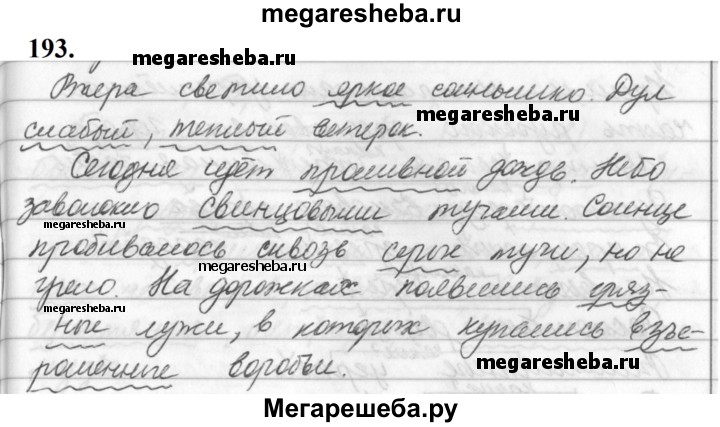 megaresheba.ru
193.
megaresheba.ru
Вчера светило яркое солнышко. Дул
megaresheba.ru
слабый, теплый ветерок.
Сегодня идёт проливной дождь. Небо
заволокло свинцовыми тучами. Солнце
megaresheba.ru
пробивалось сквозь серые тучи, но не
megaresheba.ru
грело. На дорожках появились гряз-
ные лужи, в которых купались взъе-
megaresheba.ru
рошенные воробьи.
Мегарешеба.ру